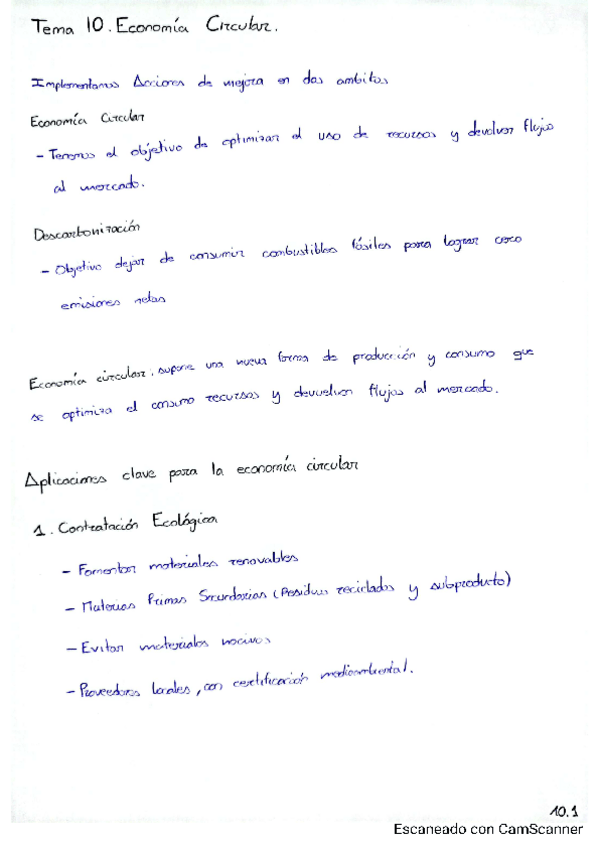 Tema 10. Economía Circular.
Implementamos Acciones de mejora en dos ambitos
Economía Circular
- Tenemos el objetivo de optimizar el uso de recursos y devolver flujos
al mercado.
Descarbonización
- Objetivo dejar de consumir combustibles fósiles para lograr cero
emisiones netas
Economía circular, supone una nueva forma de producción y consumo que
se optimiza el consumo recursos y devuelven flujos al mercado.
Aplicaciones clave para la economía circular
1. Contratación Ecológica
- Fomentar materiales renovables
- Materias Primas Secundarias (Residuos reciclados y subproducto)
- Evitar materiales nocivos
- Proveedores locales, con certificación medioambiental.
10.1
Escaneado con CamScanner